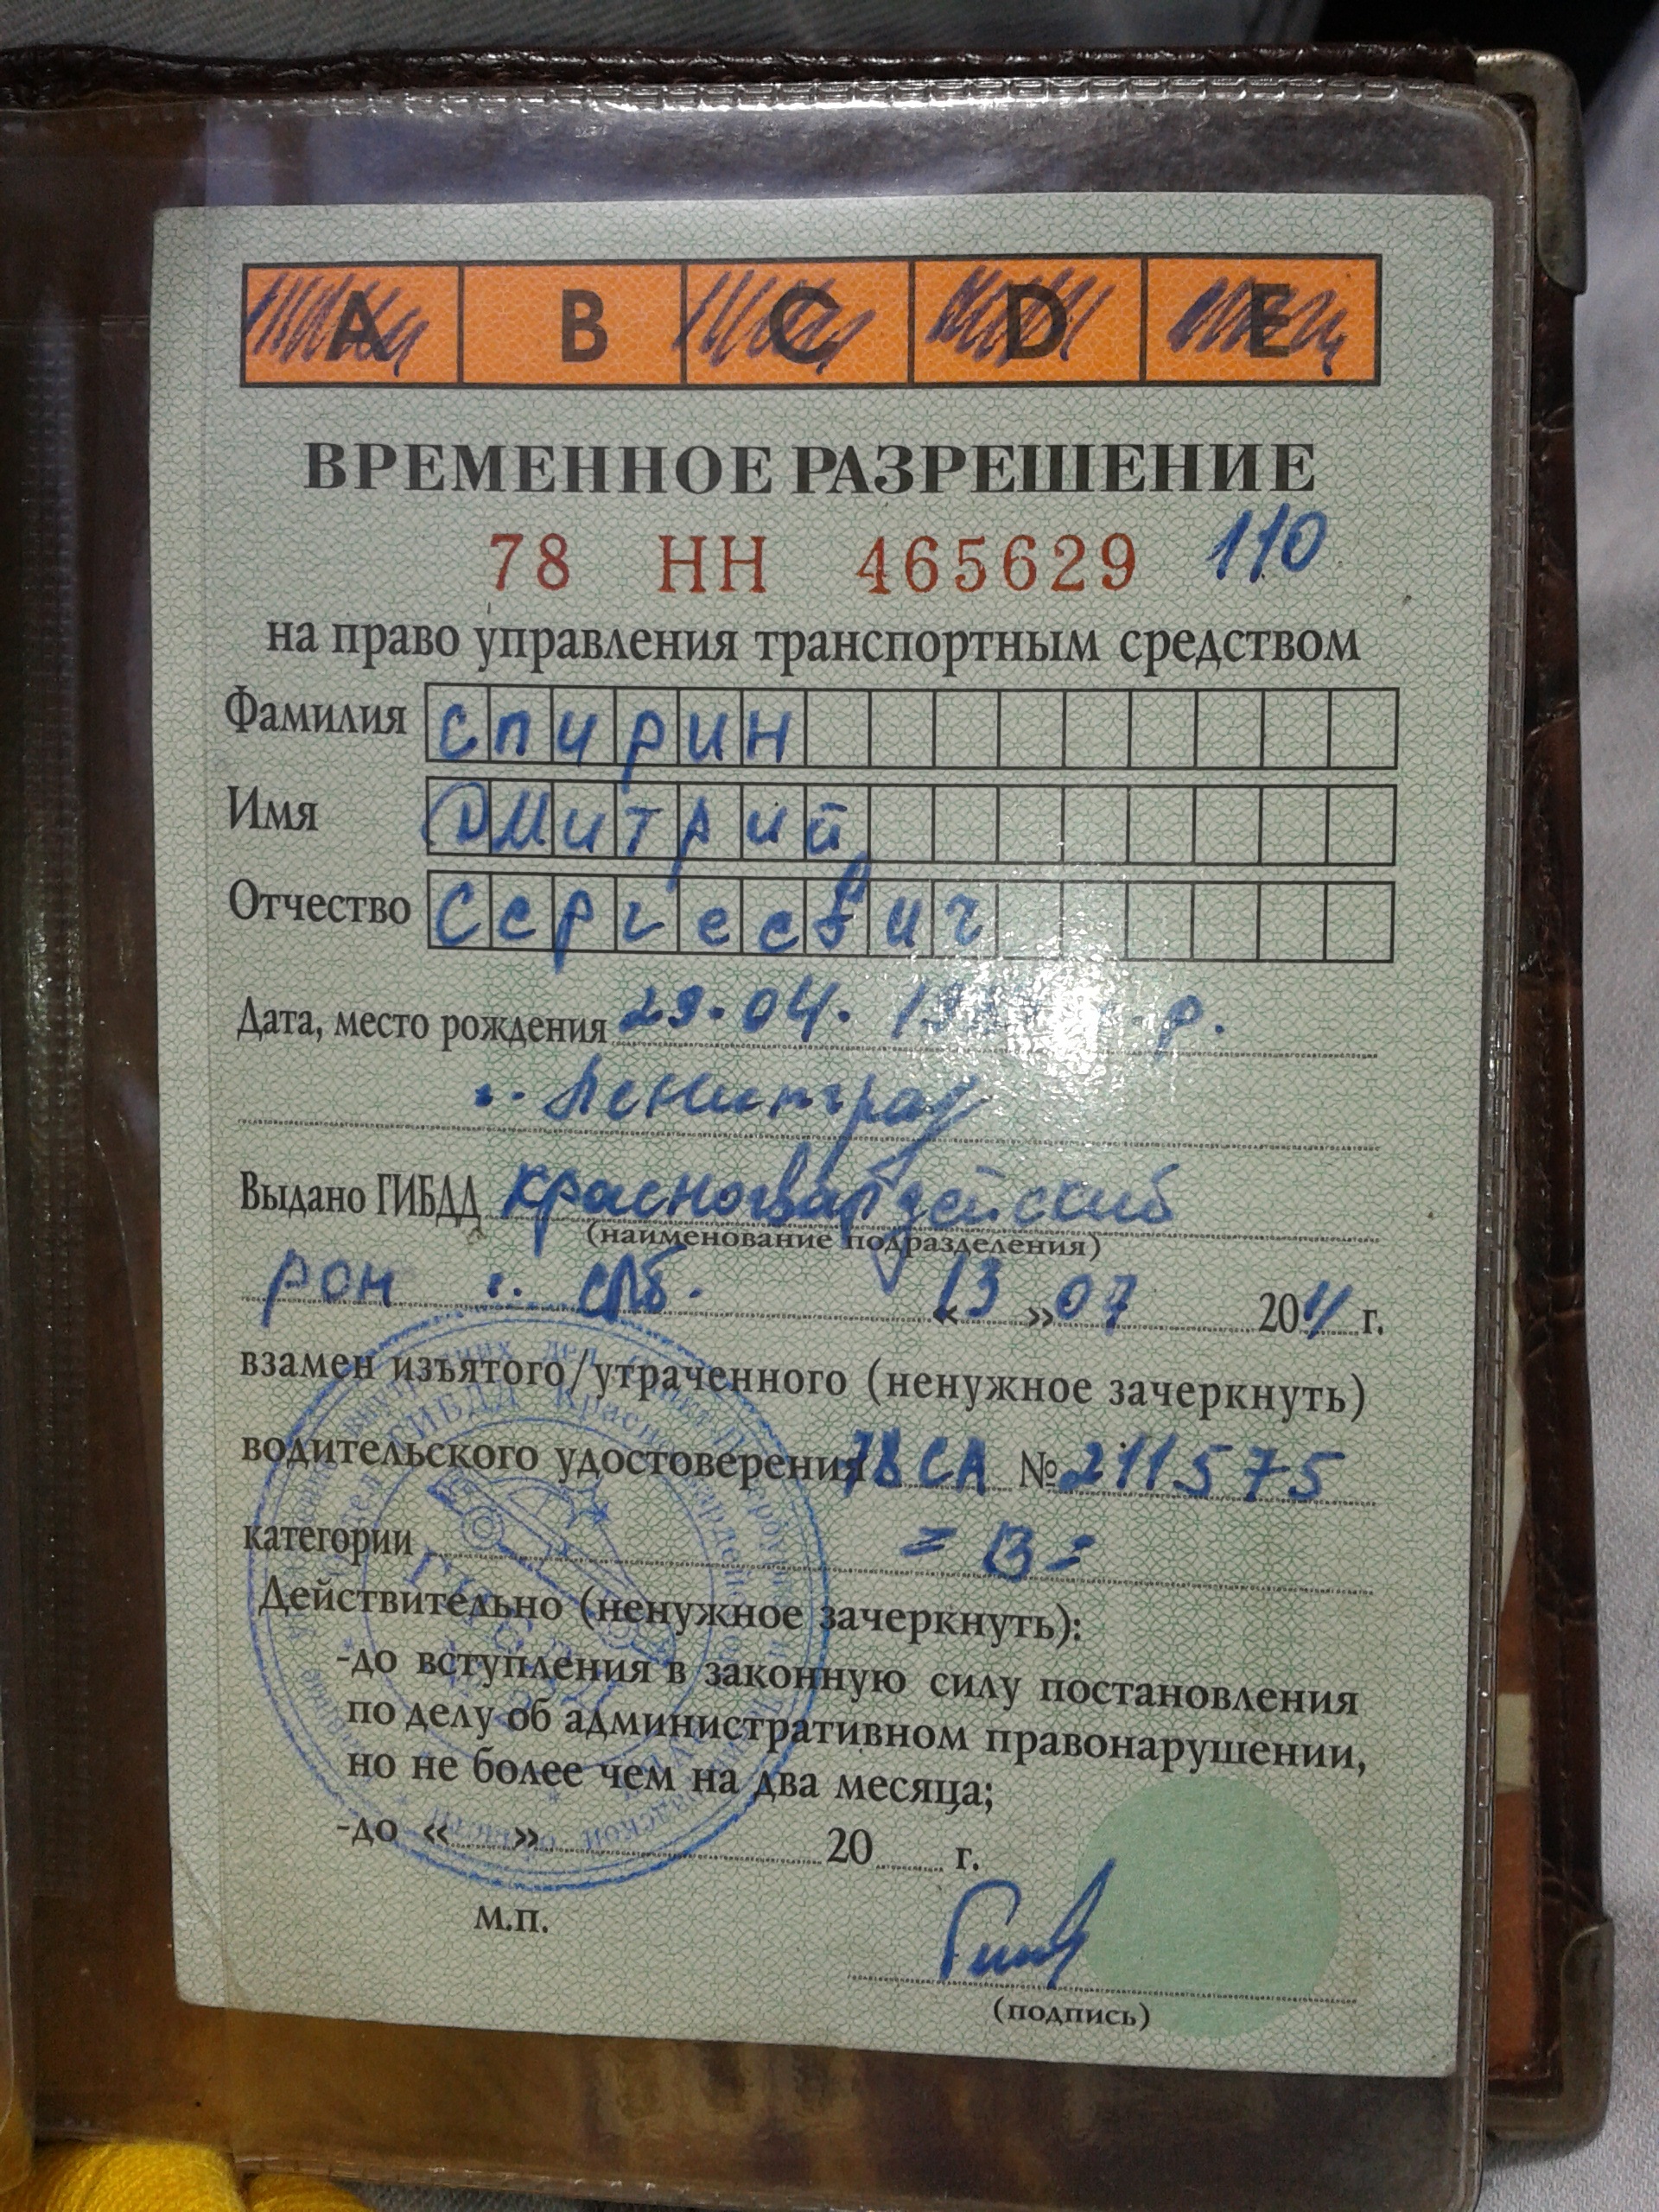 А В С D Е
ВРЕМЕННОЕ РАЗРЕШЕНИЕ
78 НН 465629 110
на право управления транспортным средством
Фамилия Спирин
Имя Дмитрий
Отчество Сергеевич
Дата, место рождения 29.04. г.р.
г. Ленинград
Выдано ГИБДД Красногвардейский
(наименование подразделения)
рон г. СПб. «13» 07 2011 г.
взамен изъятого/утраченного (ненужное зачеркнуть)
водительского удостоверения 78 СА № 211575
категории = В =
Действительно (ненужное зачеркнуть):
-до вступления в законную силу постановления
по делу об административном правонарушении,
но не более чем на два месяца;
-до « » 20 г.
М.П.
(подпись)